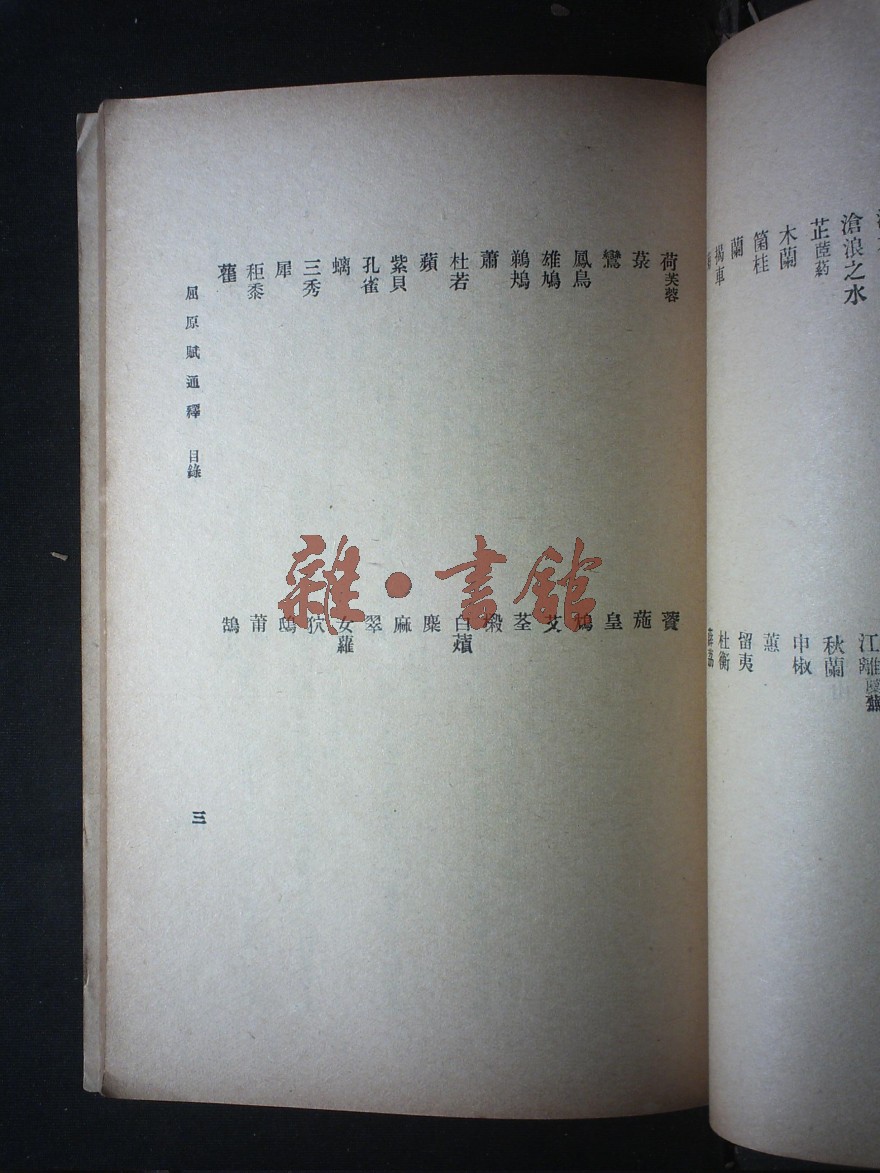 滄浪之水 江離
芷茝葯 秋蘭
木蘭 申椒
箘桂 蕙
蘭 留夷
揭車 杜衡
薜荔
荷芙蓉 薋
菉 葹
鸞 皇
鳳鳥 鴆
雄鳩 艾
鵜鴂 荃
蕭 榝
杜若 白薠
蘋 麋
紫貝 麻
孔雀 翠
螭 女蘿
三秀 狖
犀 鴟
秬黍 莆
雚 鵠
屈原賦通釋 目錄 三
雜·書館